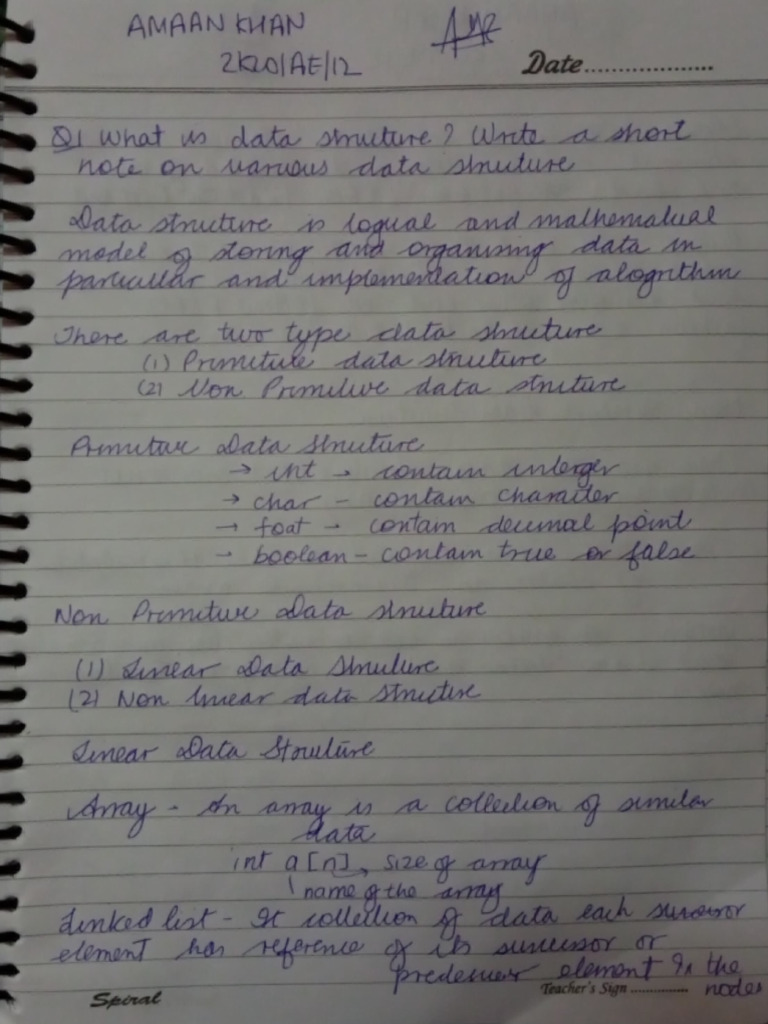 AMAAN KHAN
2K20/AE/12
Date
Q1 What is data structure? Write a short
note on various data struture
Data structure is logical and mathematical
model of storing and organising data in
particular and implementation of alogrithm
There are two type data structure
(1) Primitive data structure
(2) Non Primitive data struture
Primitive Data Structure
→ int → contain interger
→ char - contain character
→ foat - contam decimal point
- boolean - contam true or false
Non Primitive Data structure
(1) Linear Data Structure
(2) Non linear data structure
Linear Data Structure
Array - An array is a collection of similar
data
int a[n] → size of array
name of the array
Linked list - It collection of data each sucessor
element has reference of its sucessor or
predecessor element In the
nodes
Spiral
Teacher's Sign